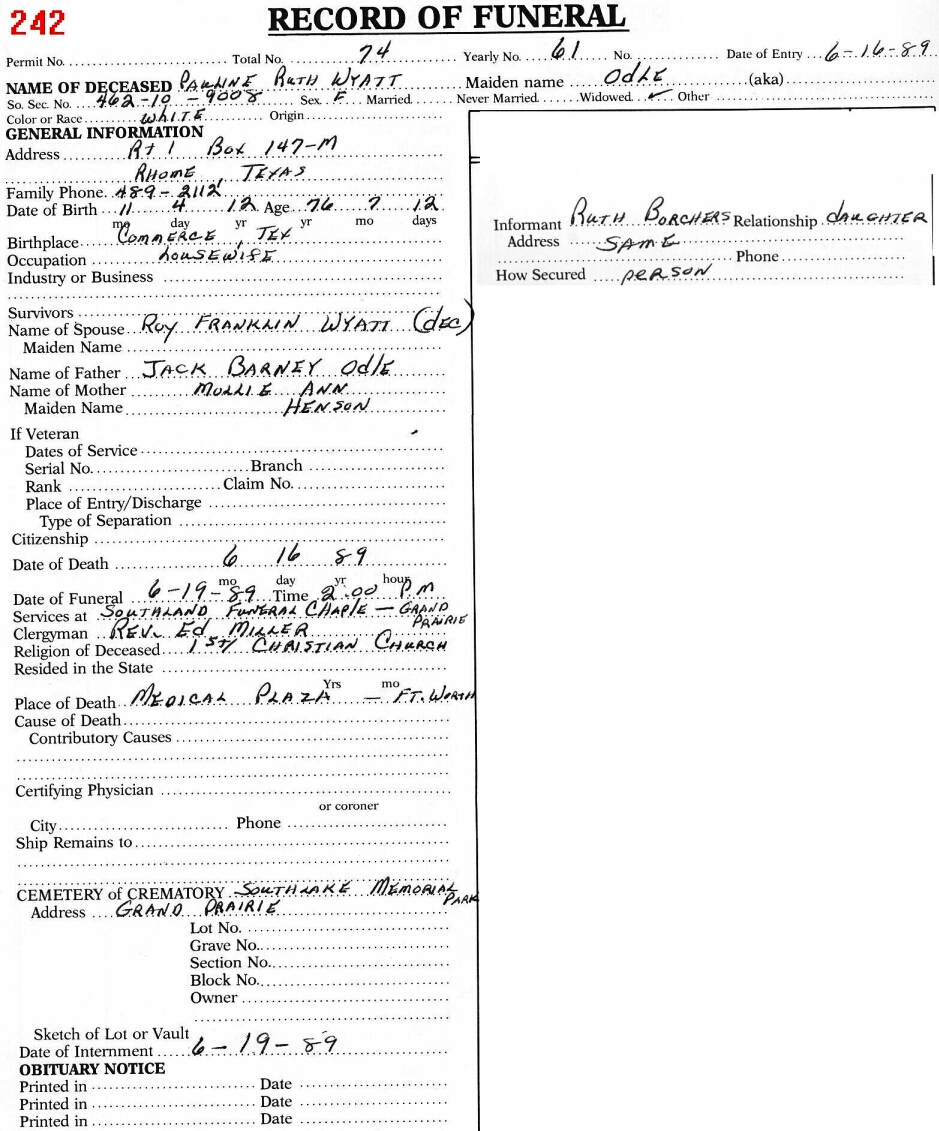 242
RECORD OF FUNERAL
Permit No. Total No. 74 Yearly No. 61 No. Date of Entry 6-16-89
NAME OF DECEASED PAULINE RUTH WYATT Maiden name OdlE (aka)
So. Sec. No. 462-10-9008 Sex. F Married Never Married Widowed ✓ Other
Color or Race WHITE Origin
GENERAL INFORMATION
Address Rt 1 Box 147-M
RHOME, TEXAS
Family Phone. 489-2112
Date of Birth 11 4 12 Age 76 7 12
mo day yr yr mo days
Birthplace COMMERCE, TEX
Occupation HOUSEWIFE
Industry or Business
Informant RUTH BORCHERS Relationship dAUGHTER
Address SAME
Phone
How Secured PERSON
Survivors
Name of Spouse ROY FRANKLIN WYATT (dEC)
Maiden Name
Name of Father JACK BARNEY OdlE
Name of Mother MOLLIE ANN
Maiden Name HENSON
If Veteran
Dates of Service
Serial No. Branch
Rank Claim No.
Place of Entry/Discharge
Type of Separation
Citizenship
Date of Death 6 16 89
mo day yr hour
Date of Funeral 6-19-89 Time 2:00 PM
Services at SOUTHLAND FUNERAL CHAPLE — GRAND PRAIRIE
Clergyman REV. Ed MILLER
Religion of Deceased 1ST CHRISTIAN CHURCH
Resided in the State
Yrs mo
Place of Death MEDICAL PLAZA — FT. WORTH
Cause of Death
Contributory Causes
Certifying Physician
or coroner
City Phone
Ship Remains to
CEMETERY of CREMATORY SOUTHLAKE MEMORIAL PARK
Address GRAND PRAIRIE
Lot No.
Grave No.
Section No.
Block No.
Owner
Sketch of Lot or Vault
Date of Internment 6-19-89
OBITUARY NOTICE
Printed in Date
Printed in Date
Printed in Date